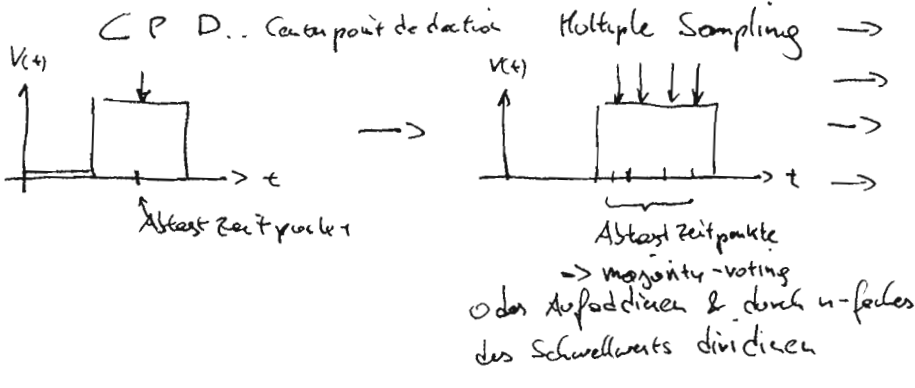 C P D.. Centerpoint detection Multiple Sampling →
V(t)
V(t)
→
→
→
→
t
t
→
Abtastzeitpunkt
Abtastzeitpunkte
-> majority-voting
oder Aufaddieren & durch n-faches
des Schwellwerts dividieren